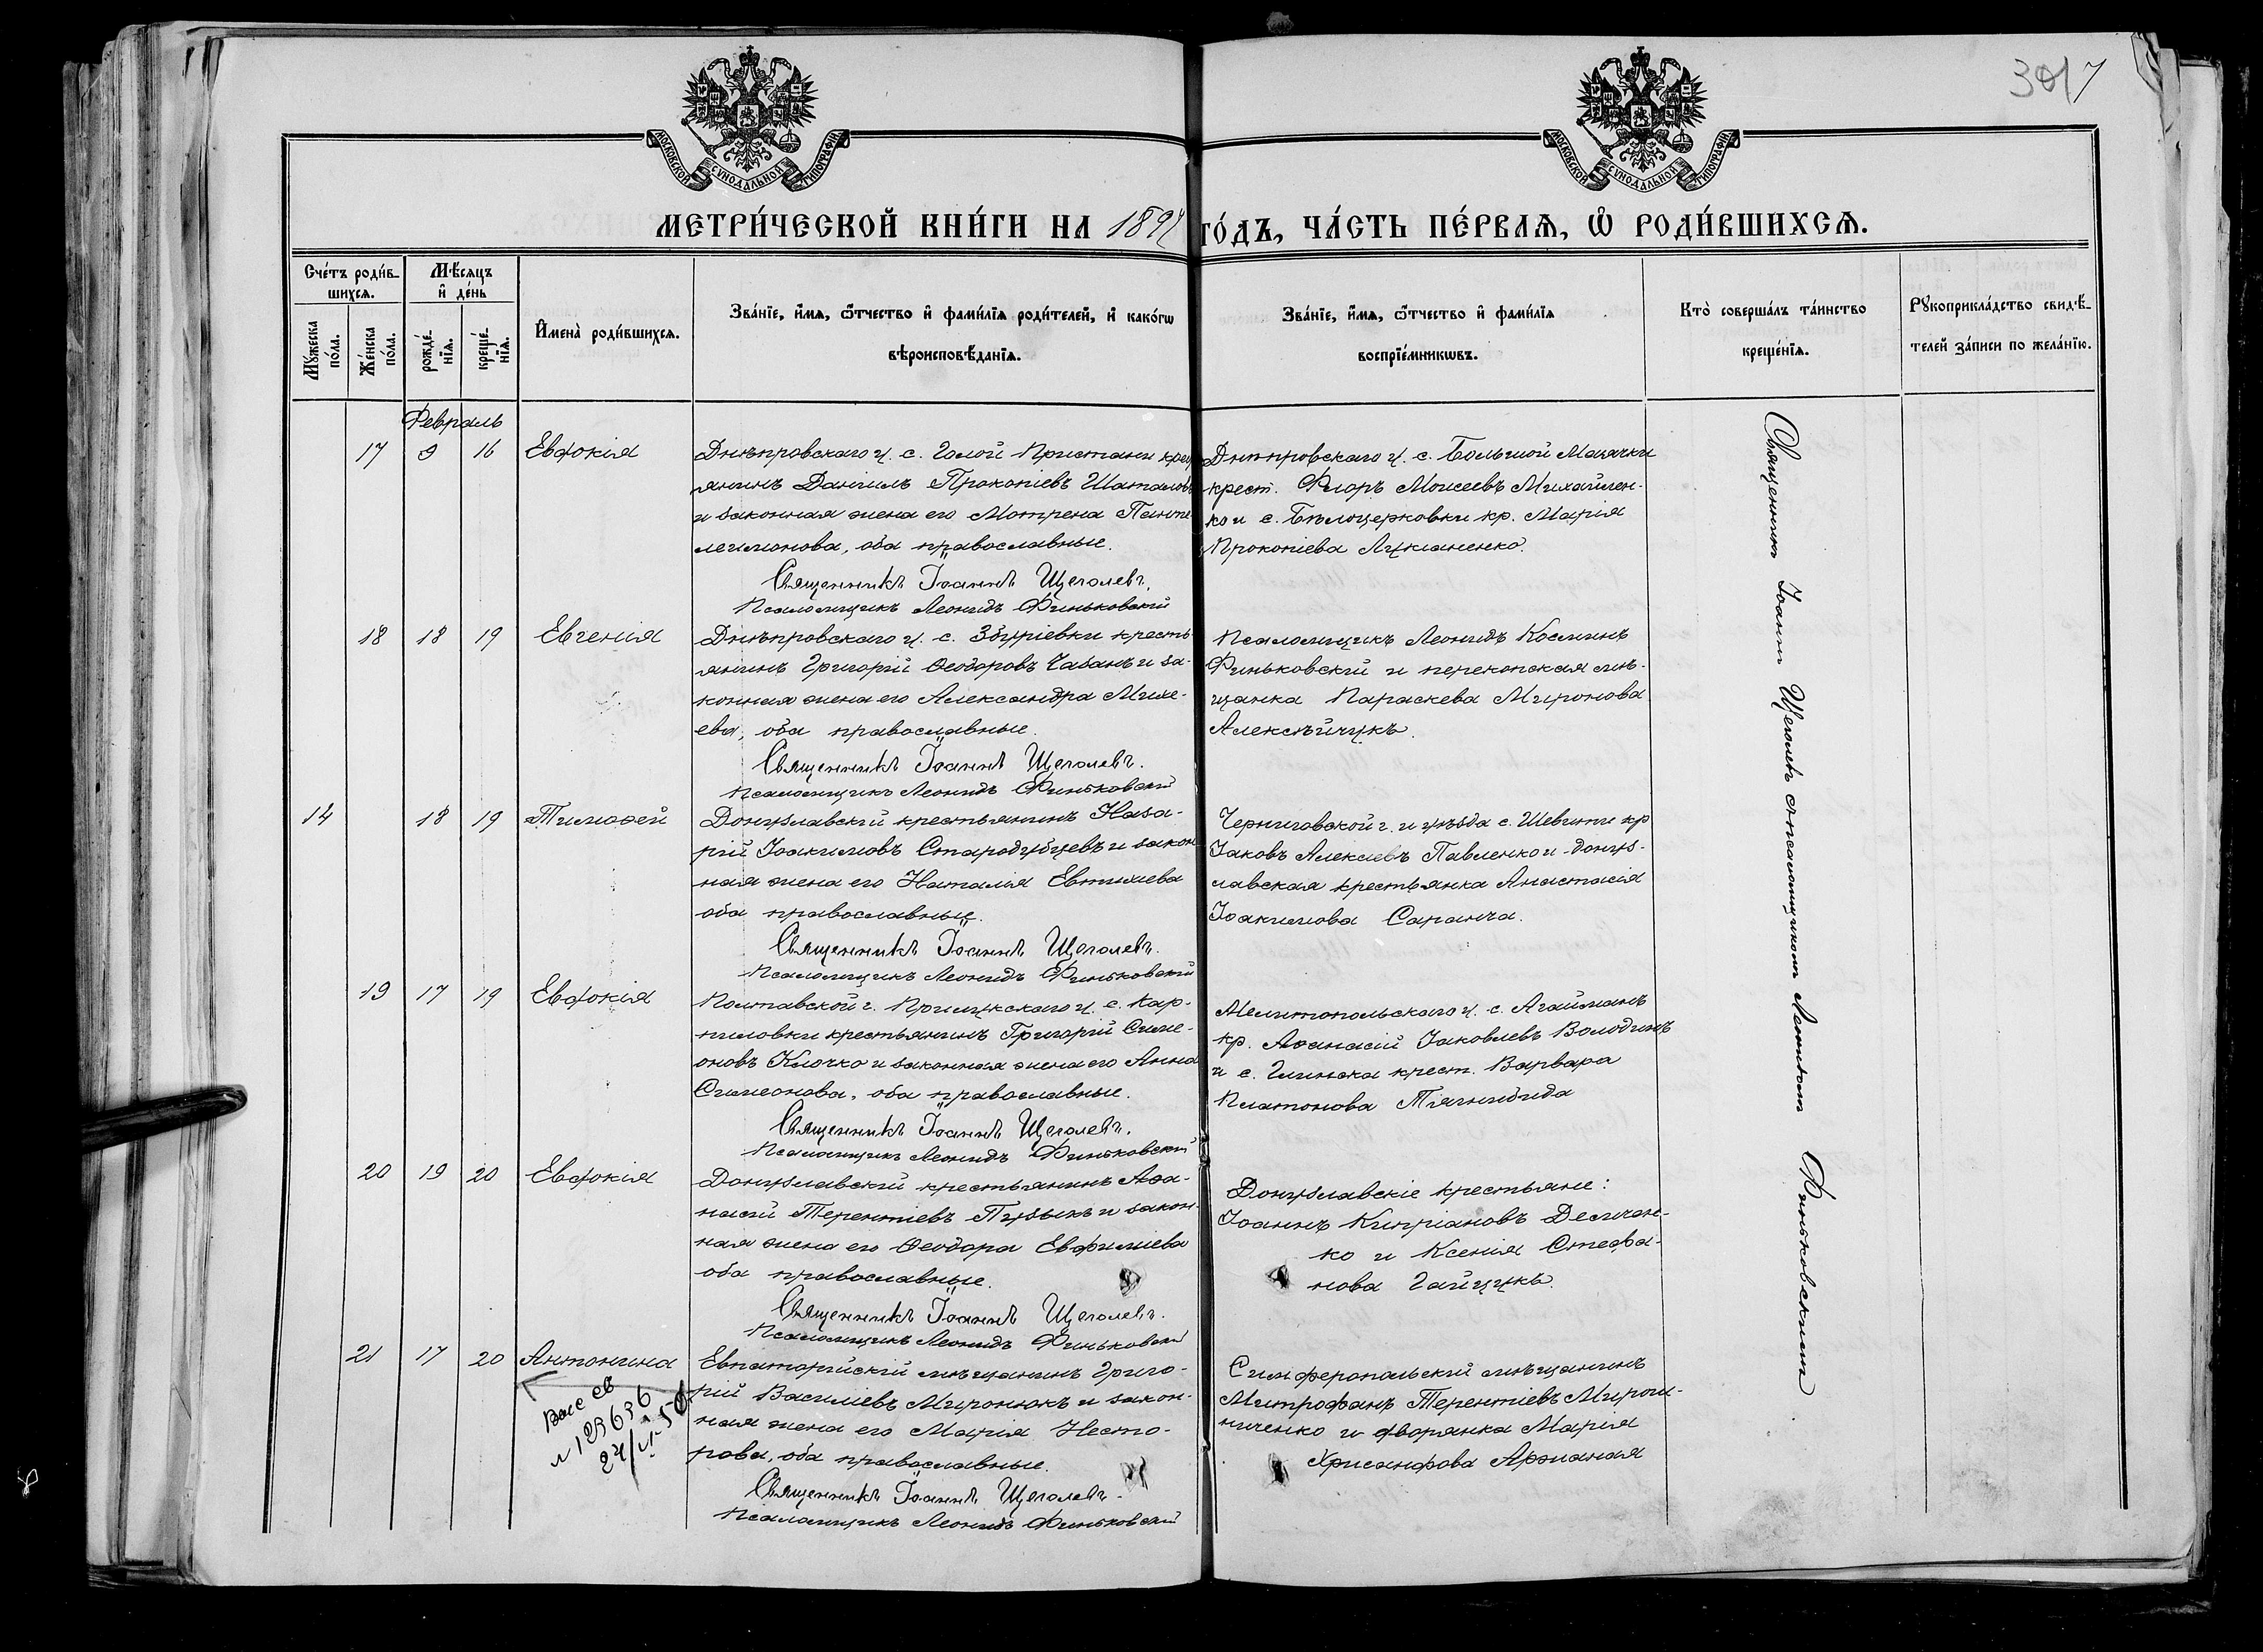 3017
МОСКОВСКОЙ СѴНОДАЛЬНОЙ ТИПОГРАФІИ
МОСКОВСКОЙ СѴНОДАЛЬНОЙ ТИПОГРАФІИ
МЕТРИ́ЧЕСКОЙ КНИ́ГИ НА 1897 ГО́ДЪ, ЧА́СТЬ ПЕ́РВАѦ, Ѡ҆ РОДИ́ВШИХСѦ.
Сче́тъ роди́в-
шихсѧ.
Мꙋ́жеска
по́ла.
Же́нска
по́ла.
Мѣ́сѧцъ
и҆ де́нь
рожде́-
нїѧ.
креще́-
нїѧ.
И҆мена̀ роди́вшихсѧ.
Зва́нїе, и҆́мѧ, ѻ҆́тчество и҆ фами́лїѧ роди́телей, и҆ како́гѡ
вѣроисповѣ́данїѧ.
Зва́нїе, и҆́мѧ, ѻ҆́тчество и҆ фами́лїѧ
воспрїе́мникѡвъ.
Кто̀ соверша́лъ та́инство
креще́нїѧ.
Рꙋкоприкла́дство свидѣ́-
телей за́писи по жела́нїю.
Февраль
17 9 16 Евдокія
Днѣпровскаго у. с. Голой Пристани крес
янинъ Даніилъ Прокопіевъ Шаталовъ
и законная жена его Мотрена Панте
леимонова, оба православные.
Священникъ Іоаннъ Щеголевъ.
Псаломщикъ Леонидъ Финьковскій
Днѣпровскаго у. с. Большой Маячки
крест. Флоръ Моисеевъ Михайлен-
ко и с. Бѣлоцерковки кр. Марія
Прокопіева Лукіаненко.
18 18 19 Евгенія
Днѣпровскаго у. с. Збурiевки кресть-
янинъ Григорій Ѳеодоровъ Чабанъ и за-
конная жена его Александра Михе-
ева, оба православные.
Священникъ Іоаннъ Щеголевъ.
Псаломщикъ Леонидъ Финьковскій
Псаломщикъ Леонидъ Косминъ
Финьковскій и перекопская мѣ-
щанка Параскева Миронова
Алексѣйчукъ.
14 18 19 Тимоѳей
Донузлавскій крестьянинъ Наза-
рій Іоакимовъ Стародубцевъ и закон
ная жена его Наталія Евтихіева
оба православные.
Священникъ Іоаннъ Щеголевъ.
Псаломщикъ Леонидъ Финьковскій
Черниговской г. и уѣзда с. кр
Іаковъ Алексіевъ Павленко и донуз-
лавская крестьянка Анастасія
Іоакимова Саранча.
19 17 19 Евдокія
Полтавской г. Прилукскаго у. с. Кар-
пиловки крестьянинъ Григорій Симе-
оновъ Клочко и законная жена его Анна
Симеонова, оба православные.
Священникъ Іоаннъ Щеголевъ.
Псаломщикъ Леонидъ Финьковскій
Мелитопольскаго у. с. Агайманъ
кр. Аѳанасій Іаковлевъ Володинъ
и с. Глинска крест. Варвара
Платонова Тягнибида
20 19 20 Евдокія
Донузлавскій крестьянинъ Аѳа-
насій Терентіевъ Пузыкъ и закон-
ная жена его Ѳеодора Евфиміева
оба православные.
Священникъ Іоаннъ Щеголевъ.
Псаломщикъ Леонидъ Финьковскій
Донузлавскіе крестьяне:
Іоаннъ Кипріановъ
ко и Ксенія Стефа-
нова Гайцукъ.
21 17 20 Антонина
Евпаторійскій мѣщанинъ Григо-
рій Василіевъ Миронюкъ и закон-
ная жена его Марія Несто-
рова, оба православные.
Священникъ Іоаннъ Щеголевъ.
Псаломщикъ Леонидъ Финьковскій
Симферопольскій мѣщанинъ
Митрофанъ Терентіевъ Мирош-
ниченко и дворянка Марія
Хрисанфова
св
Священникъ Іоаннъ Щеголевъ съ псаломщикомъ Леонидомъ Финьковскимъ
8